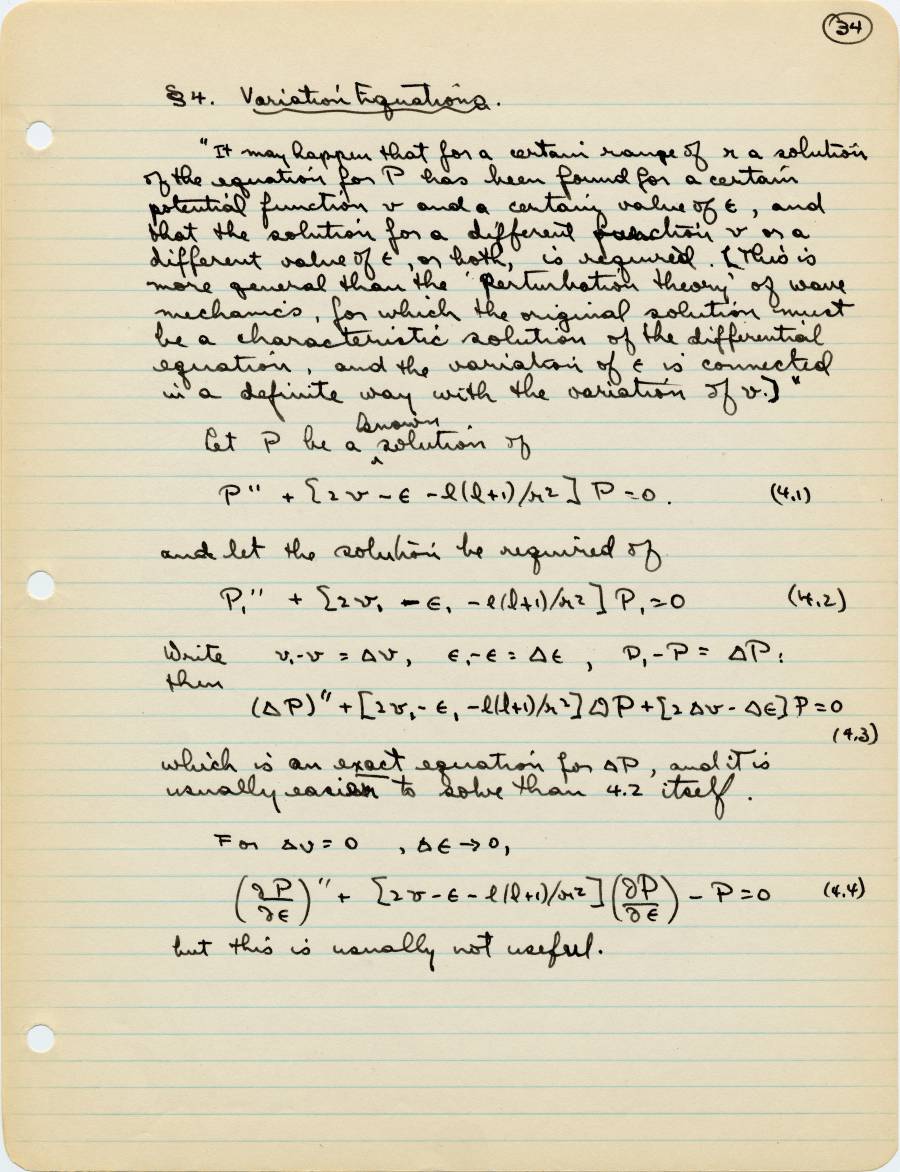 34
§4. Variation Equations.
"It may happen that for a certain range of r a solution
of the equation for P has been found for a certain
potential function v and a certain value of ε, and
that the solution for a different function v or a
different value of ε, or both, is required. [This is
more general than the 'perturbation theory' of wave
mechanics, for which the original solution must
be a characteristic solution of the differential
equation, and the variation of ε is connected
in a definite way with the variation of v.]"
known
Let P be a ^ solution of
P'' + [2v - ε - l(l+1)/r²] P = 0. (4.1)
and let the solution be required of
P₁'' + [2v₁ - ε₁ - l(l+1)/r²] P₁ = 0 (4.2)
Write v₁-v = Δv, ε₁-ε = Δε, P₁-P = ΔP;
then
(ΔP)'' + [2v₁ - ε₁ - l(l+1)/r²] ΔP + [2Δv - Δε] P = 0
(4.3)
which is an exact equation for ΔP, and it is
usually easier to solve than 4.2 itself.
For Δv = 0, Δε → 0,
(∂P/∂ε)'' + [2v - ε - l(l+1)/r²] (∂P/∂ε) - P = 0 (4.4)
but this is usually not useful.